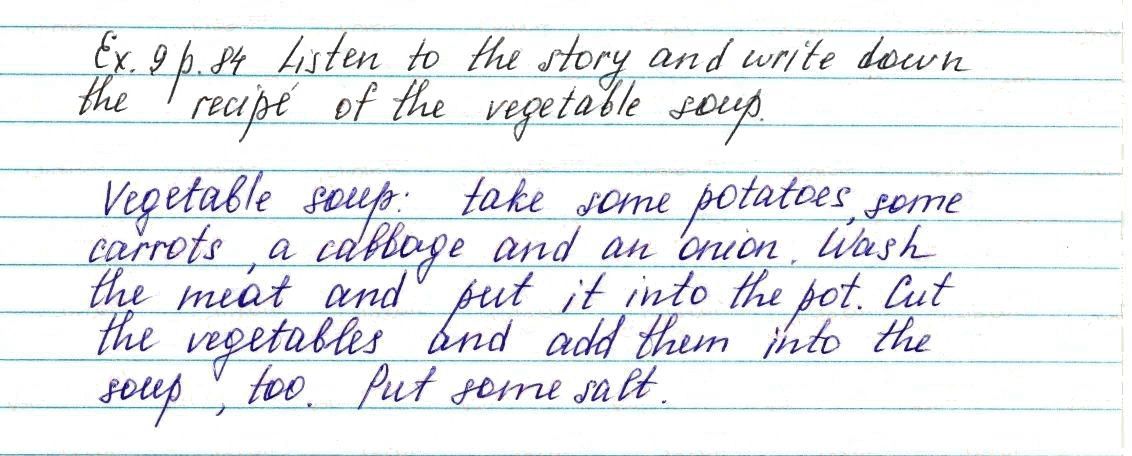 Ex. 9 p. 84 Listen to the story and write down
the recipe of the vegetable soup.
Vegetable soup: take some potatoes, some
carrots, a cabbage and an onion. Wash
the meat and put it into the pot. Cut
the vegetables and add them into the
soup, too. Put some salt.